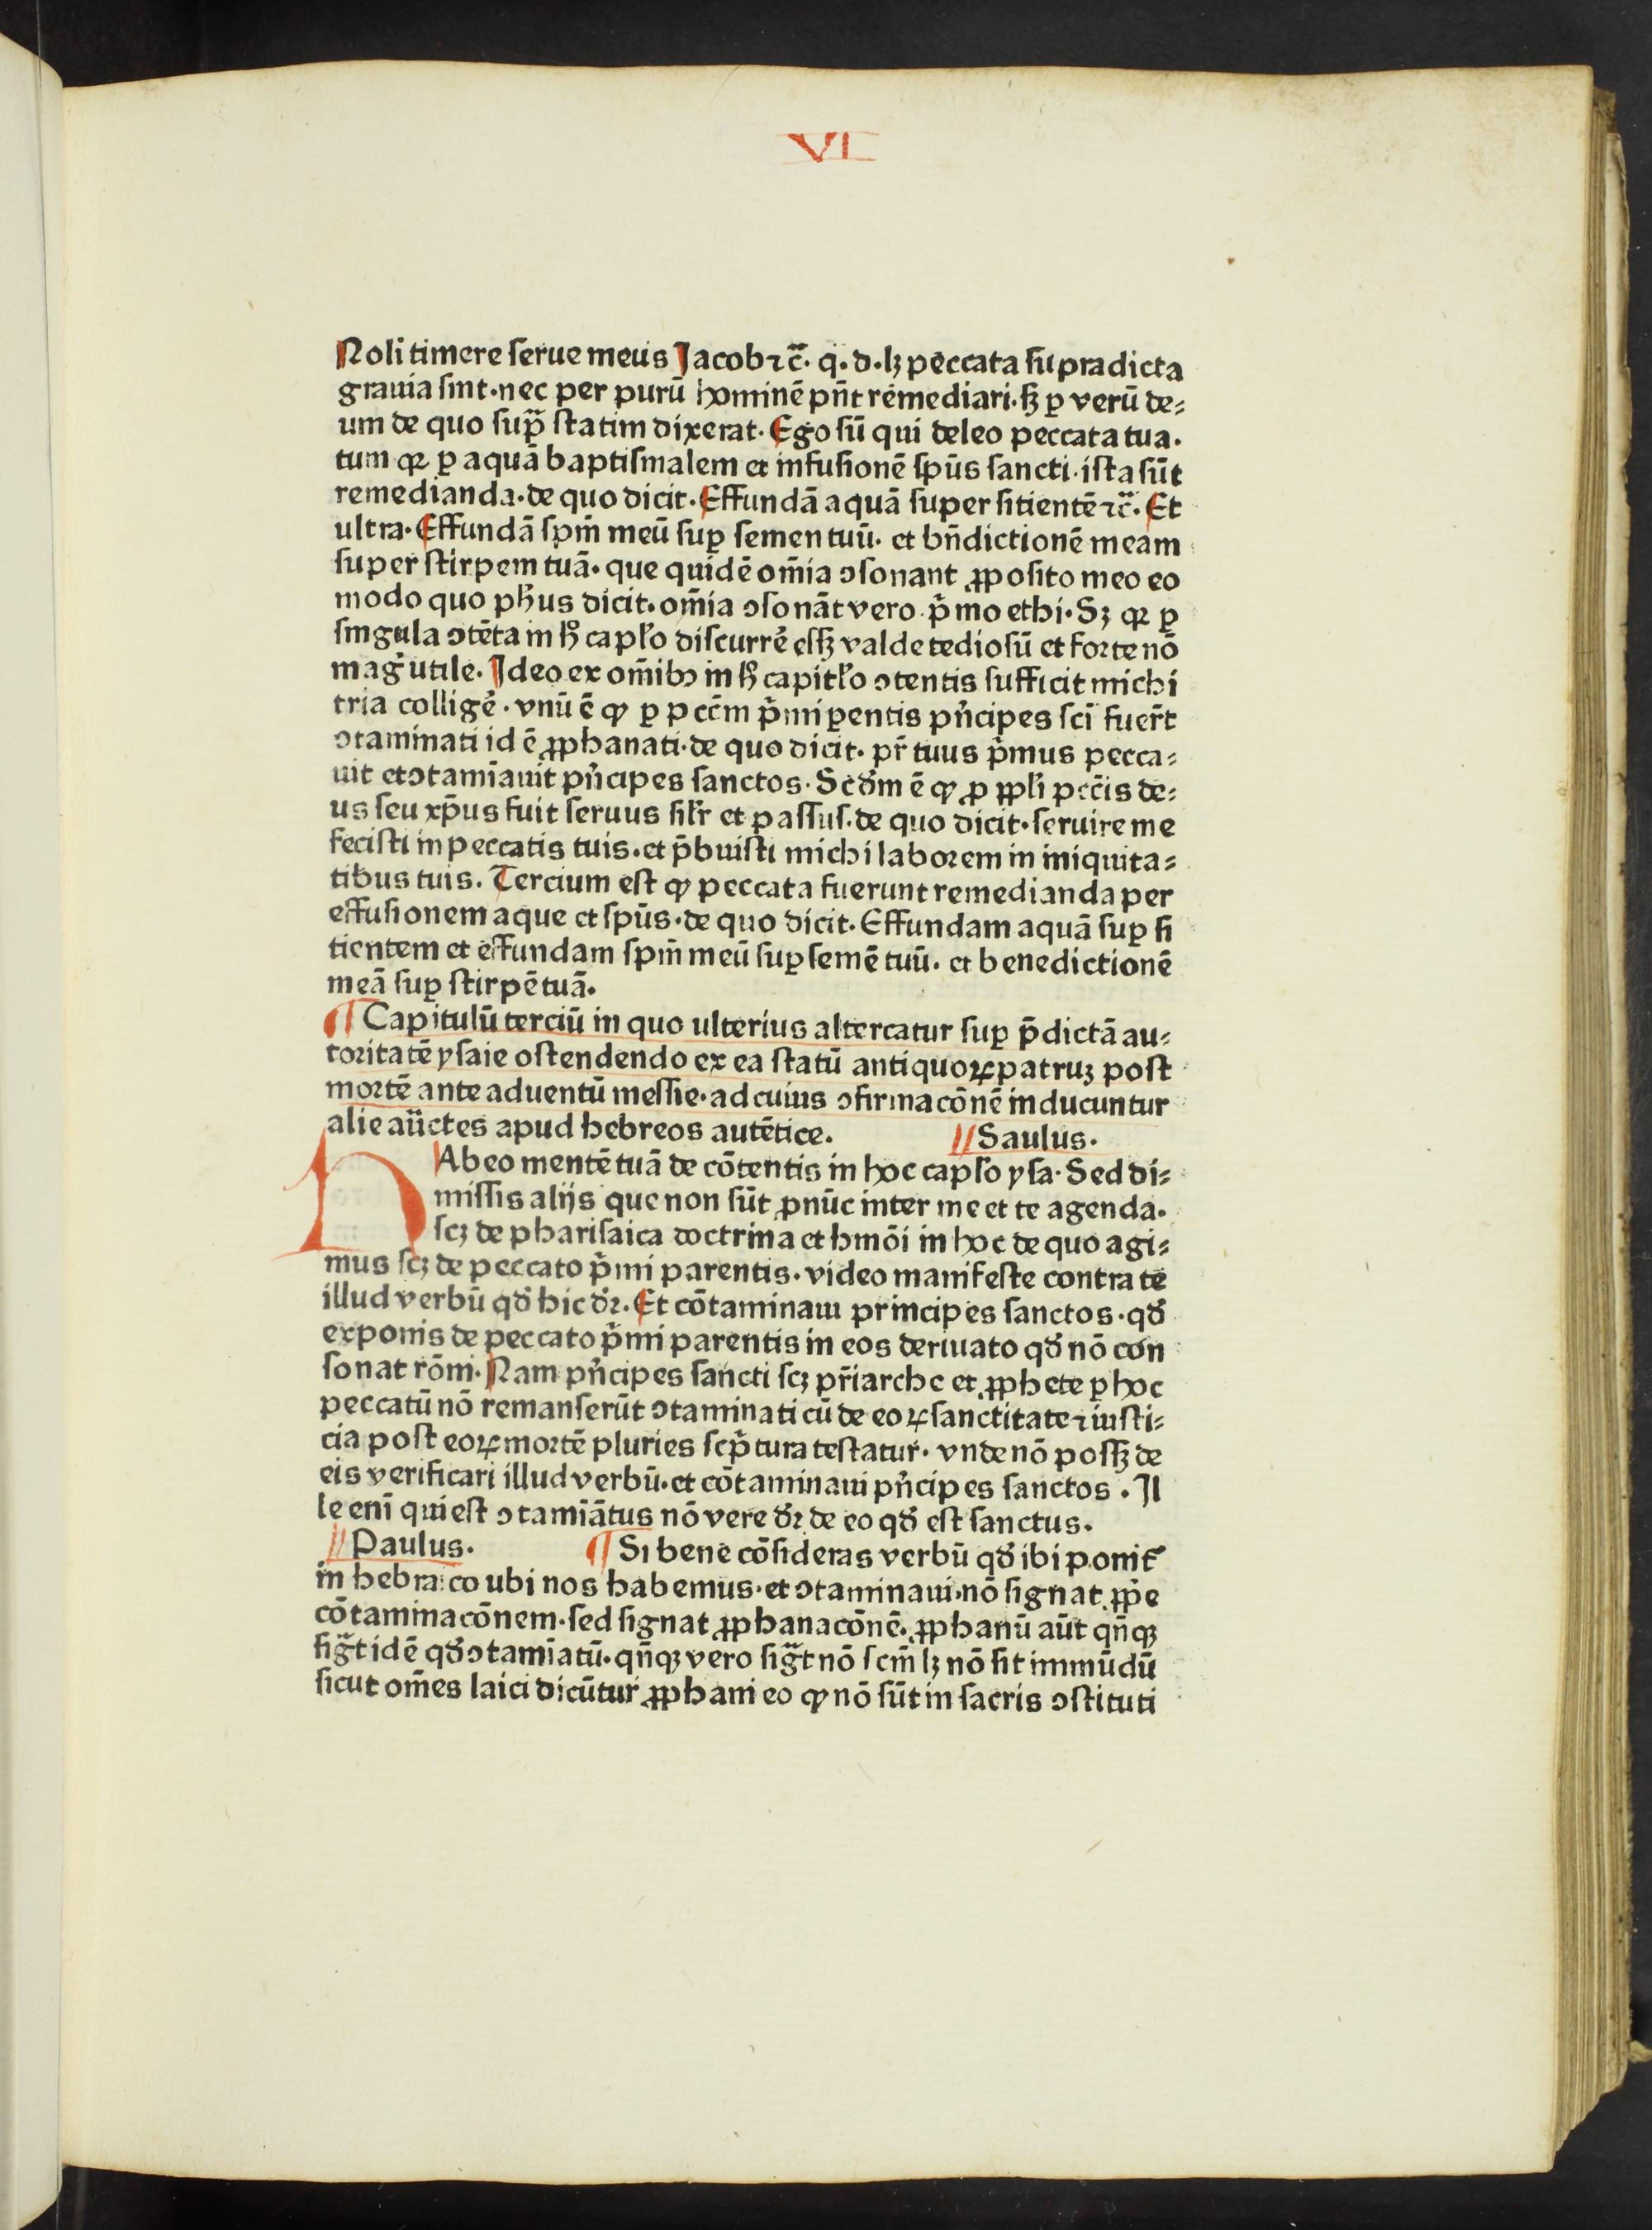 VI
Noli timere ſerue meus Jacob ⁊c̄. q. d. lꝫ peccata ſupradicta
grauia ſint. nec per purū hominē pn̄t remediari. ſꝫ ꝑ verū de⸗
um de quo ſup̄ ſtatim dixerat. Ego ſū qui deleo peccata tua.
tum qꝛ ꝑ aquā baptiſmalem et infuſionē ſpūs ſancti. iſta ſūt
remedianda. de quo dicit. Effundā aquā ſuper ſitientē ⁊c̄. Et
ultra. Effundā ſpm̄ meū ſuꝑ ſemen tuū. et bn̄dictionē meam
ſuper ſtirpem tuā. que quidē om̄ia ↄſonant ꝓpoſito meo eo
modo quo ph̄us dicit. om̄ia ↄſonāt vero. p̄mo ethi. Sꝫ qꝛ ꝑ
ſingula ↄtēta in hͦ capl̄o diſcurrē eſſꝫ valde tedioſū et forte nō
mag̉ utile. Ideo ex om̄ibꝰ in hͦ capitl̄o ↄtentis ſufficit michi
tria colligē. vnū ē ꝙ ꝑ pccm̄ p̄mi ꝑentis pn̄cipes ſci fuer̄t
ↄtaminati id ē ꝓphanati. de quo dicit. pr̄ tuus p̄mus pecca⸗
uit et ↄtamīauit pn̄cipes ſanctos. Scd̄m ē ꝙ ꝓ ppl̄i pcc̄is de⸗
us ſeu xp̄us fuit ſeruus ſil̄r et paſſuſ. de quo dicit. ſeruire me
feciſti in peccatis tuis. et p̄buiſti michi laborem in iniquita⸗
tibus tuis. Tercium eſt ꝙ peccata fuerunt remedianda per
effuſionem aque et ſpūs. de quo dicit. Effundam aquā ſuꝑ ſi
tientem et effundam ſpm̄ meū ſuꝑ ſemē tuū. et benedictionē
meā ſuꝑ ſtirpē tuā.
¶ Capitulū terciū in quo ulterius altercatur ſuꝑ p̄dictā au⸗
toritatē yſaie oſtendendo ex ea ſtatū antiquoꝝ patruꝫ poſt
mortē ante aduentū meſſie. ad cuius ↄfirmacōnē inducuntur
alie aūctes apud hebreos autētice. // Saulus.
HAbeo mentē tuā de cōtentis in hoc capl̄o yſa. Sed di⸗
miſſis alijs que non ſūt ꝓnūc inter me et te agenda.
ſcꝫ de phariſaica doctrina et hmōi in hoc de quo agi⸗
mus ſcꝫ de peccato p̄mi parentis. video manifeſte contra te
illud verbū qd̄ hic dr̄. Et cōtaminaui principes ſanctos. qd̄
exponis de peccato p̄mi parentis in eos deriuato qd̄ nō con
ſonat rōni. Nam pn̄cipes ſancti ſcꝫ pr̄iarche et ꝓphete ꝑ hoc
peccatū nō remanſerūt ↄtaminati cū de eoꝝ ſanctitate ⁊ iuſti⸗
cia poſt eoꝝ mortē pluries ſcp̄tura teſtatur. vnde nō poſſꝫ de
eis verificari illud verbū. et cōtaminaui pn̄cipes ſanctos. Il
le eni qui eſt ↄtamīātus nō vere dr̄ de eo qd̄ eſt ſanctus.
// Paulus. ¶ Si bene cōſideras verbū qd̄ ibi ponit̄
in hebraico ubi nos habemus. et ↄtaminaui. nō ſignat ꝓpe
cōtaminacōnem. ſed ſignat ꝓphanacōnē. ꝓphanū aūt qn̄qꝫ
ſig̅t idē qd̄ ↄtamīatū. qn̄qꝫ vero ſig̅t nō ſcm̄ lꝫ nō ſit immūdū
ſicut om̄es laici dicūtur ꝓphani eo ꝙ nō ſūt in ſacris ↄſtituti